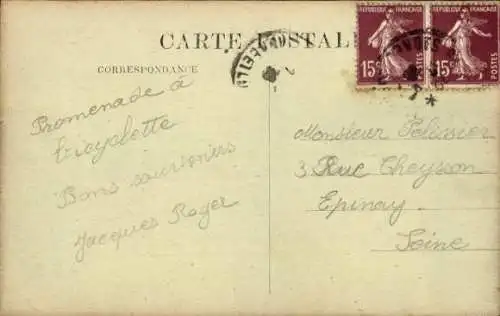 CARTE POSTALE
RÉPUBLIQUE FRANÇAISE
15c
POSTES
RÉPUBLIQUE FRANÇAISE
15c
POSTES
CORRESPONDANCE
Promenade à
bicyclette
Bons souvenirs
Jacques Roger
Monsieur Pelissier
3 Rue Cheysson
Epinay
Seine